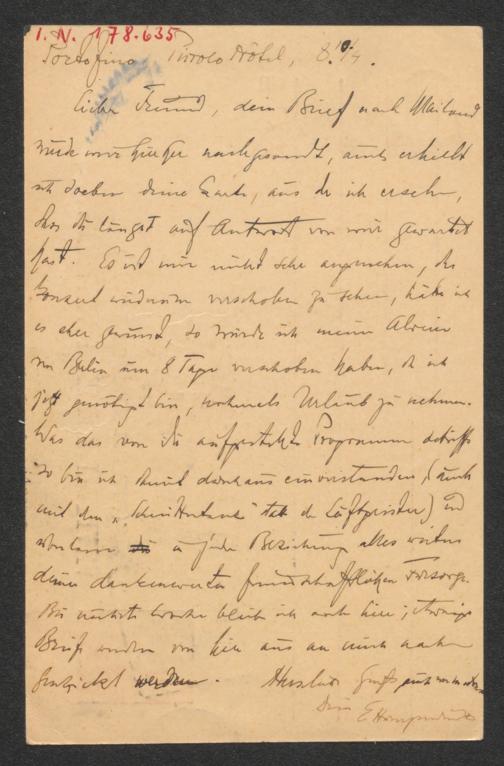 I. N. 178.635
Portofino Piccolo Hôtel, 8.IV.
Lieber Freund, dein Brief nach Mailand
wurde mir hierher nachgesandt, auch erhielt
ich soeben deine Karte, aus der ich ersehe,
dass du längst auf Antwort von mir gewartet
hast. Es ist mir nicht sehr angenehm, das
Konzert wiederum verschoben zu sehen, hätte ich
es eher gewusst, so würde ich meine Abreise
von Berlin um 8 Tage verschoben haben, da ich
jetzt genötigt bin, nochmals Urlaub zu nehmen.
Was das von dir aufgestellte Programm betrifft
so bin ich damit durchaus einverstanden (auch
mit dem " " der Luftgeister) und
überlasse in jeder Beziehung alles weitere
deiner dankenswerten freundschaftlichen Fürsorge.
Bis nächste Woche bleibe ich noch hier; etwaige
Briefe werden von hier aus an mich nach
geschickt werden. Herzliche Grüße auch von
Dein EHumperdinck